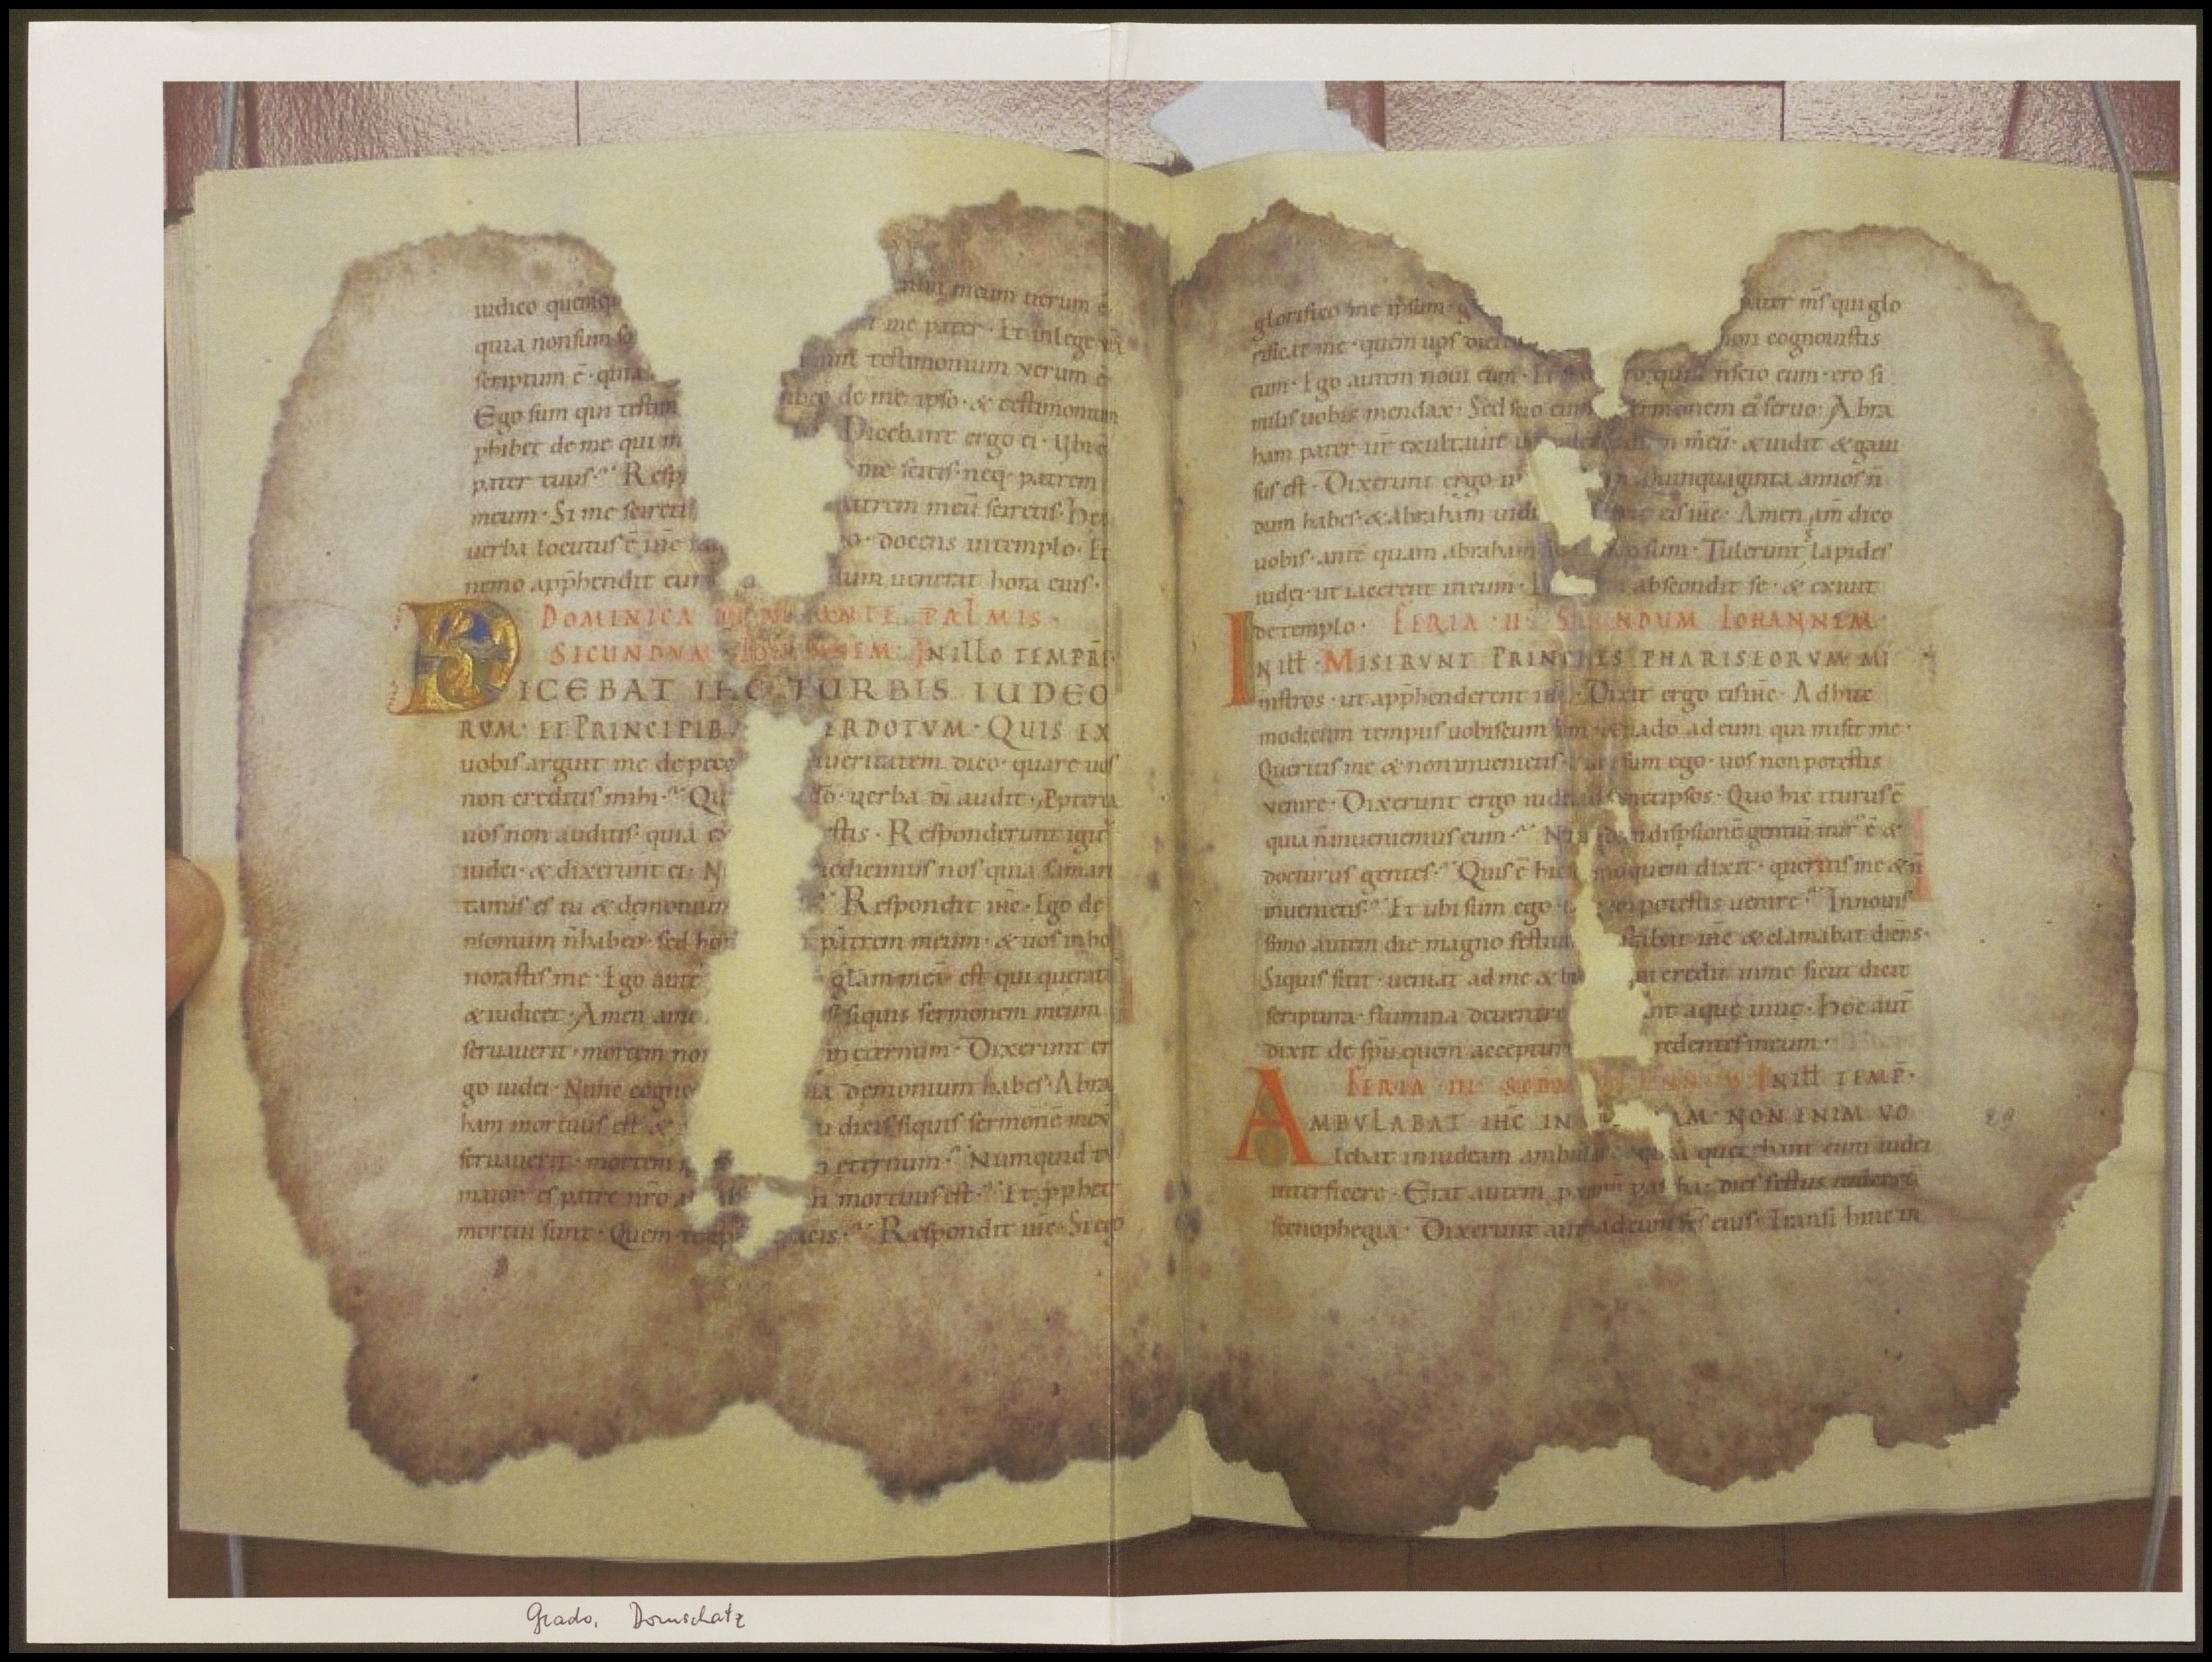 iudico quemq
nium meum uerum ē·
quia non sum so
t me pater· Et in lege
scriptum ē· quia
testimonium verum ē
Ego sum qui testim
de me ipso· & testimonium
phibet de me qui m
Dicebant ergo ei· Ubi ē
pater tuus· Resp
me scitis· neq· patrem
meum· Si me sciretis
patrem meū sciretis· hec
uerba locutus ē
docens in templo· Et
nemo apphendit eum
dum uenerat hora eius·
DOMINICA ANTE PALMIS·
SECUNDVM IOHANNEM· IN ILLO TEMPRE·
DICEBAT IHC TURBIS IUDEO
RVM· ET PRINCIPIB ERDOTVM· QUIS EX
uobis arguit me de pecc ueritatem dico· quare uos
non creditis mihi· Qu do· uerba di audit· Pptera
uos non auditis· quia ex estis· Responderunt igit
iudei· & dixerunt ei· N edicimus nos quia saman
tanus es tu & demonium Respondit ihc· Ego de
monium n habeo· sed hon patrem meum· & uos inho
norastis me· Ego autē glam meā est qui querat
& iudicet· Amen ame siquis sermonem meum
seruauerit· mortem non in eternum· Dixerunt er
go iudei· Nunc cogno ia demonium habes· Abra
ham mortuus est & u dicis siquis sermonē meū
seruauerit· mortem eternum· Numquid tu
maior es patre nro a n mortuus est· Et pphete
mortui sunt· Quem te ip acis· Respondit ihc· Si ego
glorifico me ipsum· g pater ms qui glo
rificat me· quem uos dicitis non cognouistis
eum· Ego autem noui eum· Et si quia nscio eum· ero si
milis uobis mendax· Sed scio eum sermonem ei seruo· Abra
ham pater ur exultauit m meū· & uidit & gaui
sus est· Dixerunt ergo Quinquaginta annos n
dum habes· & abraham uidi eis ihc· Amen am dico
uobis· ante quam abraham go sum· Tulerunt lapides
iudei ut iacerent in eum· abscondit se· & exiuit
de templo· FERIA II· SECUNDUM IOHANNEM·
IN ILL· MISERVNT PRINCIPES PHARISEORVM· MI
nistros· ut apphenderent ihm· Dixit ergo eis ihc· Adhuc
modicum tempus uobiscum sum· & uado ad eum qui misit me·
Queritis me & non inuenietis· sum ego· uos non potestis
venire· Dixerunt ergo iudei ad semetipsos· Quo hic iturus ē
quia n inueniemus eum· in dispsionē gentiū itur ē &
docturus gentes· Quis ē hic moquem dixit· queritis me & n
inuenietis· Et ubi sum ego· non potestis uenire· In nouis
simo autem die magno festiui stabat ihc & clamabat dicens·
Siquis sitit· ueniat ad me & bi ui credit in me sicut dicit
scriptura· flumina deuentre nt aque uiue· Hoc aut
dixit de spu quem accepturi redentes in eum·
FERIA III· IN ILL TEMP·
AMBVLABAT IHC IN AM· NON ENIM VO
lebat in iudeam ambulare· quia querebant eum iudei
interficere· Erat autem dies festus
scenophegia· Dixerunt aut ad eum frs eius· Transi hinc in
Grado, Domschatz